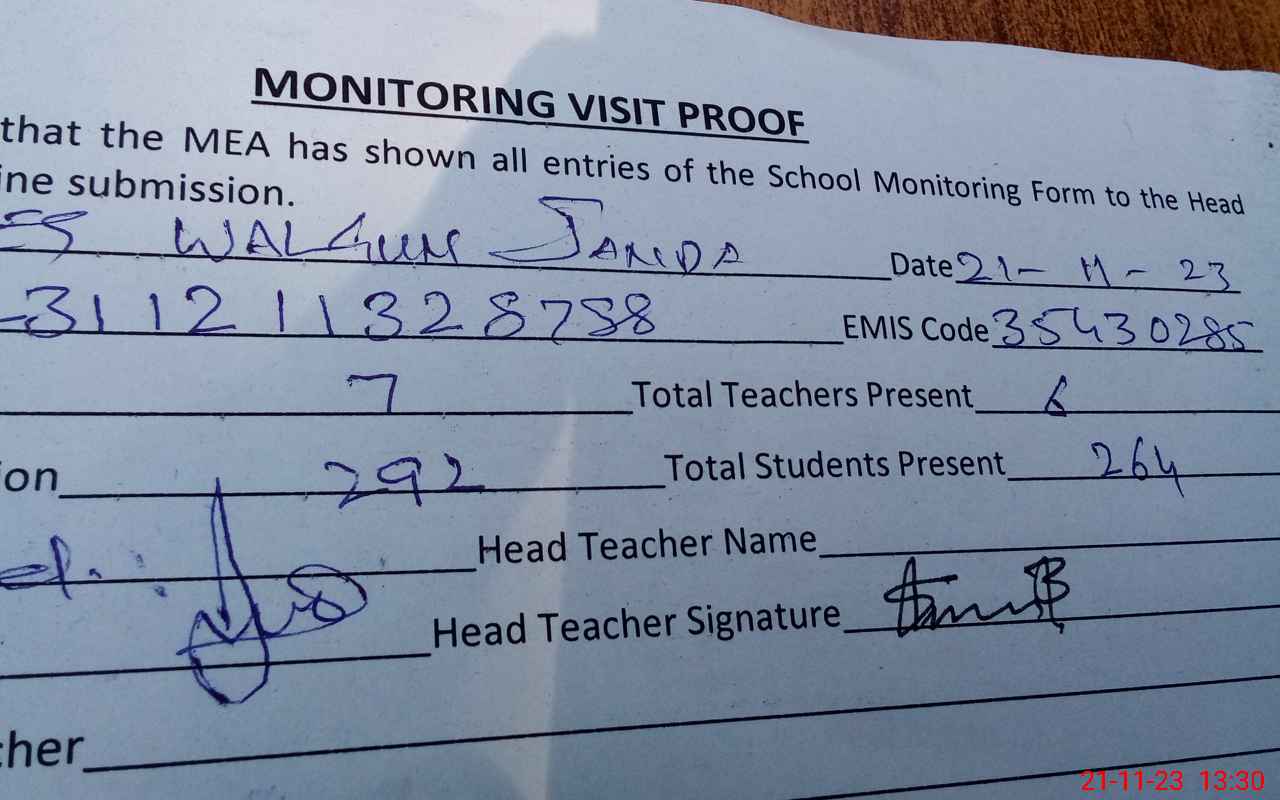 MONITORING VISIT PROOF
that the MEA has shown all entries of the School Monitoring Form to the Head
ine submission.
ES WALGUN JANDA Date 21-11-23
-311211328788 EMIS Code 35430285
7 Total Teachers Present 6
ion 292 Total Students Present 264
Head Teacher Name
Head Teacher Signature
cher
21-11-23 13:30